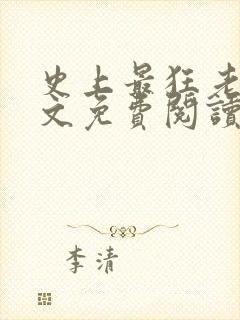 史上最狂老
文免費閱讀
李清